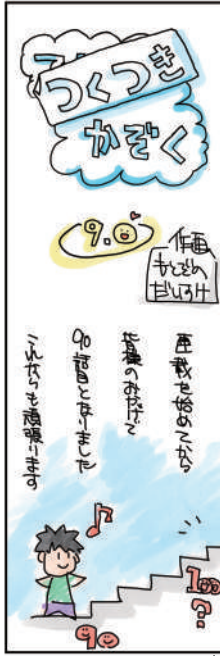 つくつき
かぞく
90
作画
もとぞの
だいすけ
連載を始めてから
皆様のおかげで
90話目となりました
これからも頑張ります
100
?
90